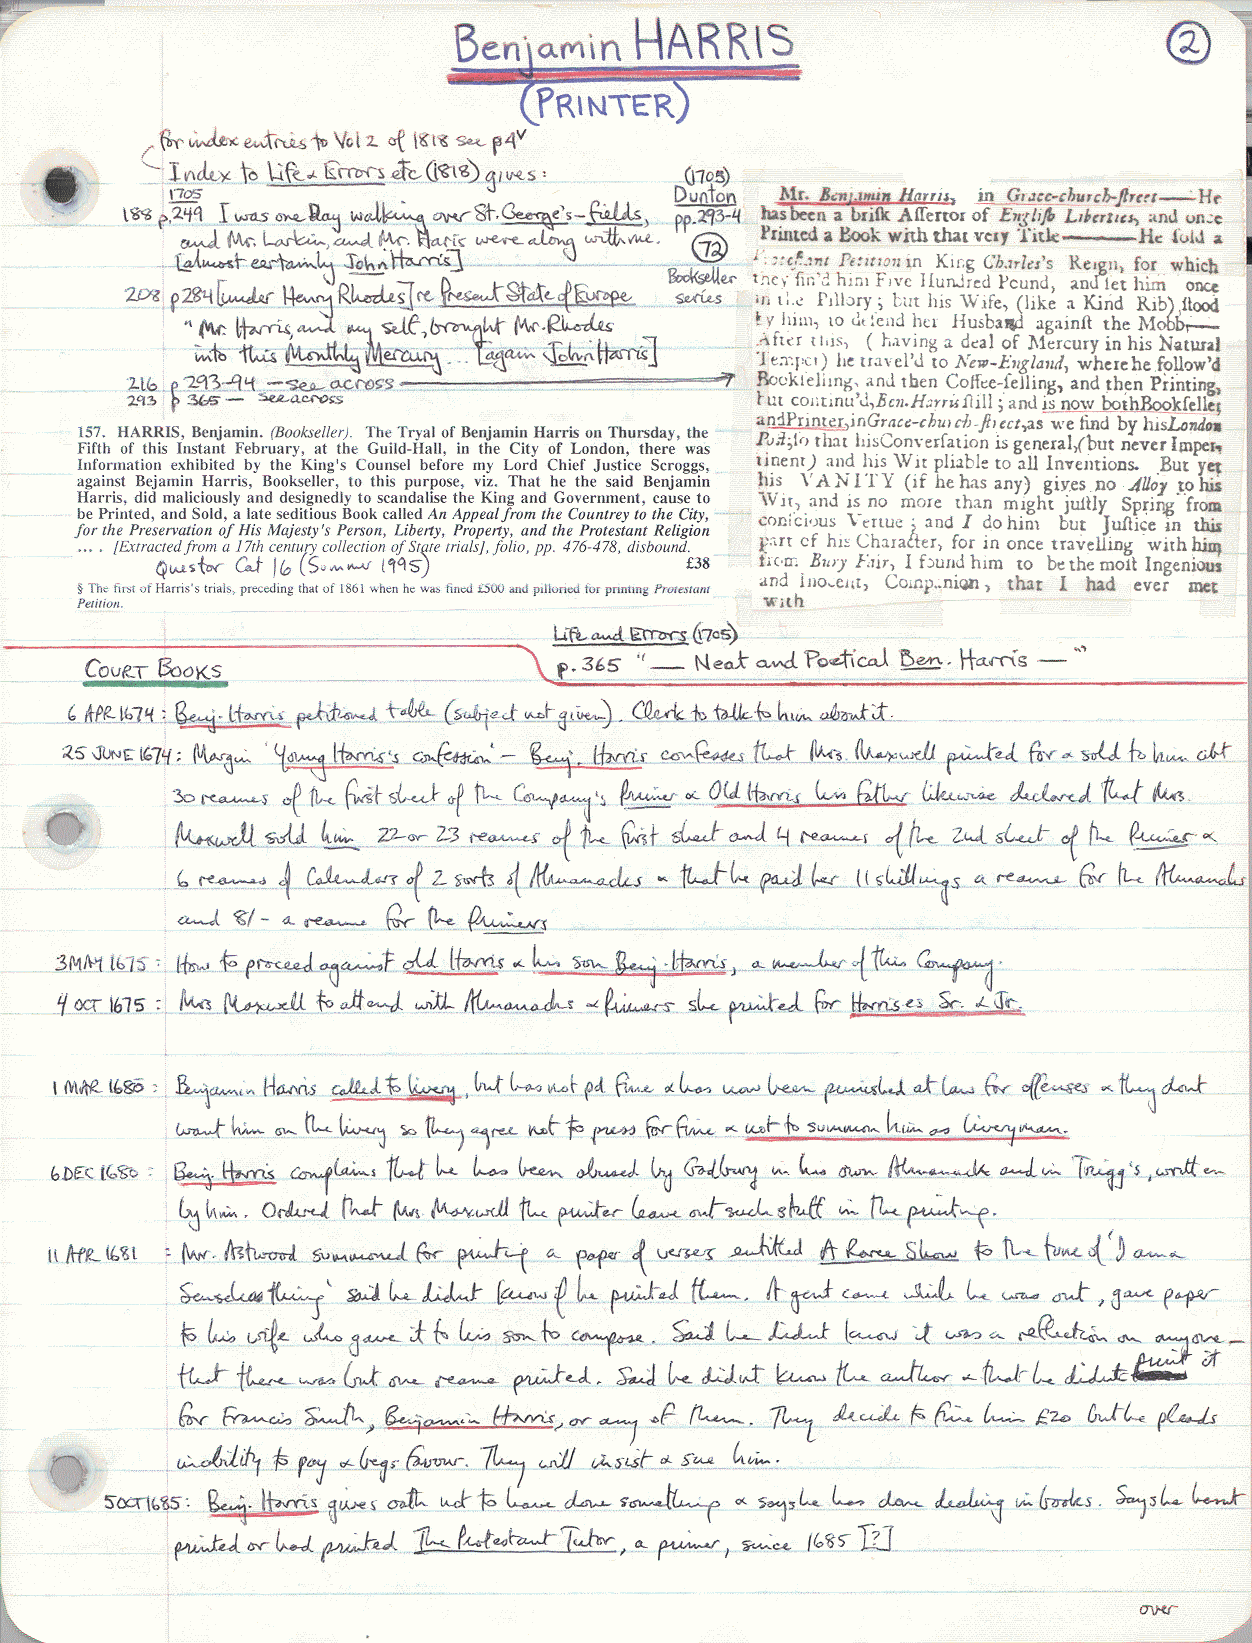 Benjamin HARRIS
2
(PRINTER)
for index entries to Vol 2 of 1818 see p4v
Index to Life & Errors etc (1818) gives:
1705
188 p.249 I was one Day walking over St. George's-fields,
and Mr. Larkin, and Mr. Haris were along with me.
[almost certainly John Harris]
208 p284 [under Henry Rhodes] re Present State of Europe
"Mr. Harris, and my self, brought Mr. Rhodes
into this Monthly Mercury ... [again John Harris]
216 p 293-94 — see across
293 p 365 — see across
(1705)
Dunton
pp.293-4
72
Bookseller
series
Mr. Benjamin Harris, in Grace-church-ſtreet——He
has been a briſk Aſſertor of Engliſh Liberties, and once
Printed a Book with that very Title———He ſold a
Proteſtant Petition in King Charles's Reign, for which
they fin'd him Five Hundred Pound, and ſet him once
in the Pillory; but his Wife, (like a Kind Rib) ſtood
by him, to defend her Husband againſt the Mobb—
After this, ( having a deal of Mercury in his Natural
Temper) he travel'd to New-England, where he follow'd
Bookſelling, and then Coffee-ſelling, and then Printing,
but continu'd, Ben. Harris ſtill; and is now both Bookſeller
and Printer, in Grace-church-ſtreet, as we find by his London
Poſt; ſo that his Converſation is general, (but never Imper-
tinent) and his Wit pliable to all Inventions. But yet
his VANITY (if he has any) gives no Alloy to his
Wit, and is no more than might juſtly Spring from
conſcious Vertue; and I do him but Juſtice in this
part of his Character, for in once travelling with him
from Bury Fair, I found him to be the moſt Ingenious
and Inocent, Companion, that I had ever met
with
157. HARRIS, Benjamin. (Bookseller). The Tryal of Benjamin Harris on Thursday, the
Fifth of this Instant February, at the Guild-Hall, in the City of London, there was
Information exhibited by the King's Counsel before my Lord Chief Justice Scroggs,
against Bejamin Harris, Bookseller, to this purpose, viz. That he the said Benjamin
Harris, did maliciously and designedly to scandalise the King and Government, cause to
be Printed, and Sold, a late seditious Book called An Appeal from the Countrey to the City,
for the Preservation of His Majesty's Person, Liberty, Property, and the Protestant Religion
... . [Extracted from a 17th century collection of State trials], folio, pp. 476-478, disbound.
Questor Cat 16 (Summer 1995) £38
§ The first of Harris's trials, preceding that of 1861 when he was fined £500 and pilloried for printing Protestant
Petition.
Life and Errors (1705)
p.365 "— Neat and Poetical Ben. Harris —"
COURT BOOKS
6 APR 1674: Benj. Harris petitioned table (subject not given). Clerk to talk to him about it.
25 JUNE 1674: Margin 'Young Harris's confession' — Benj. Harris confesses that Mrs. Maxwell printed for & sold to him abt
30 reames of the first sheet of the Company's Primer & Old Harris his father likewise declared that Mrs.
Maxwell sold him 22 or 23 reames of the first sheet and 4 reames of the 2nd sheet of the Primer &
6 reames of Calendars of 2 sorts of Almanacks & that he paid her 11 shillings a reame for the Almanacks
and 8/- a reame for the Primers
3 MAY 1675: How to proceed against old Harris & his son Benj. Harris, a member of this Company.
4 OCT 1675: Mrs Maxwell to attend with Almanacks & primers she printed for Harrises Sr. & Jr.
1 MAR 1680: Benjamin Harris called to livery, but has not pd fine & has now been punished at law for offenses & they dont
want him on the livery so they agree not to press for fine & not to summon him as liveryman.
6 DEC 1680: Benj. Harris complains that he has been abused by Gadbury in his own Almanack and in Trigg's, written
by him. Ordered that Mrs. Maxwell the printer leave out such stuff in the printing.
11 APR 1681: Mr. Astwood summoned for printing a paper of verses entitled A Raree Show to the tune of 'I am a
Senseless thing' said he didnt know if he printed them. A gent came while he was out, gave paper
to his wife who gave it to his son to compose. Said he didnt know it was a reflection on anyone —
that there was but one reame printed. Said he didnt know the author & that he didnt print it
for Francis Smith, Benjamin Harris, or any of them. They decide to fine him £20 but he pleads
inability to pay & begs favour. They will insist & sue him.
5 OCT 1685: Benj. Harris gives oath not to have done something & says he has done dealing in books. Says he hasnt
printed or had printed The Protestant Tutor, a primer, since 1685 [?]
over